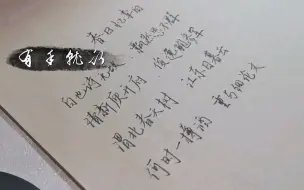 春日忆李白
白也诗无敌 飘然思不群
清新庾开府 俊逸鲍参军
渭北春天树 江东日暮云
何时一樽酒 重与细论文
有手就行